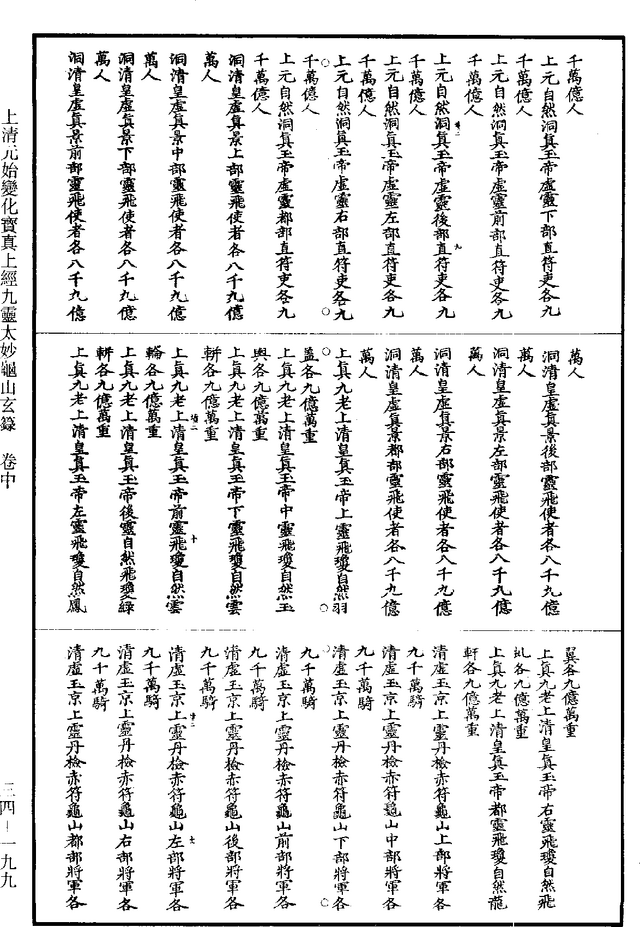 千萬億人
上元自然洞真玉帝虛靈下部直符吏各九
千萬億人
上元自然洞真玉帝虛靈前部直符吏各九
千萬億人
上元自然洞真玉帝虛靈後部直符吏各九
千萬億人
上元自然洞真玉帝虛靈左部直符吏各九
千萬億人
上元自然洞真玉帝虛靈右部直符吏各九
千萬億人
上元自然洞真玉帝虛靈都部直符吏各九
千萬億人
洞清皇虛真景上部靈飛使者各八千九億
萬人
洞清皇虛真景中部靈飛使者各八千九億
萬人
洞清皇虛真景下部靈飛使者各八千九億
萬人
洞清皇虛真景前部靈飛使者各八千九億
萬人
洞清皇虛真景後部靈飛使者各八千九億
萬人
洞清皇虛真景左部靈飛使者各八千九億
萬人
洞清皇虛真景右部靈飛使者各八千九億
萬人
洞清皇虛真景都部靈飛使者各八千九億
萬人
上真九老上清皇真玉帝上靈飛瓊自然羽
蓋各九億萬重
上真九老上清皇真玉帝中靈飛瓊自然玉
輿各九億萬重
上真九老上清皇真玉帝下靈飛瓊自然雲
軿各九億萬重
上真九老上清皇真玉帝前靈飛瓊自然雲
輪各九億萬重
上真九老上清皇真玉帝後靈自然飛瓊綠
軿各九億萬重
上真九老上清皇真玉帝左靈飛瓊自然鳳
翼各九億萬重
上真九老上清皇真玉帝右靈飛瓊自然飛
虬各九億萬重
上真九老上清皇真玉帝都靈飛瓊自然龍
軒各九億萬重
清虛玉京上靈丹檢赤符龜山上部將軍各
九千萬騎
清虛玉京上靈丹檢赤符龜山中部將軍各
九千萬騎
清虛玉京上靈丹檢赤符龜山下部將軍各
九千萬騎
清虛玉京上靈丹檢赤符龜山前部將軍各
九千萬騎
清虛玉京上靈丹檢赤符龜山後部將軍各
九千萬騎
清虛玉京上靈丹檢赤符龜山左部將軍各
九千萬騎
清虛玉京上靈丹檢赤符龜山右部將軍各
九千萬騎
清虛玉京上靈丹檢赤符龜山都部將軍各
上清元始變化寶真上經九靈太妙龜山玄籙 卷中
三四—一九九